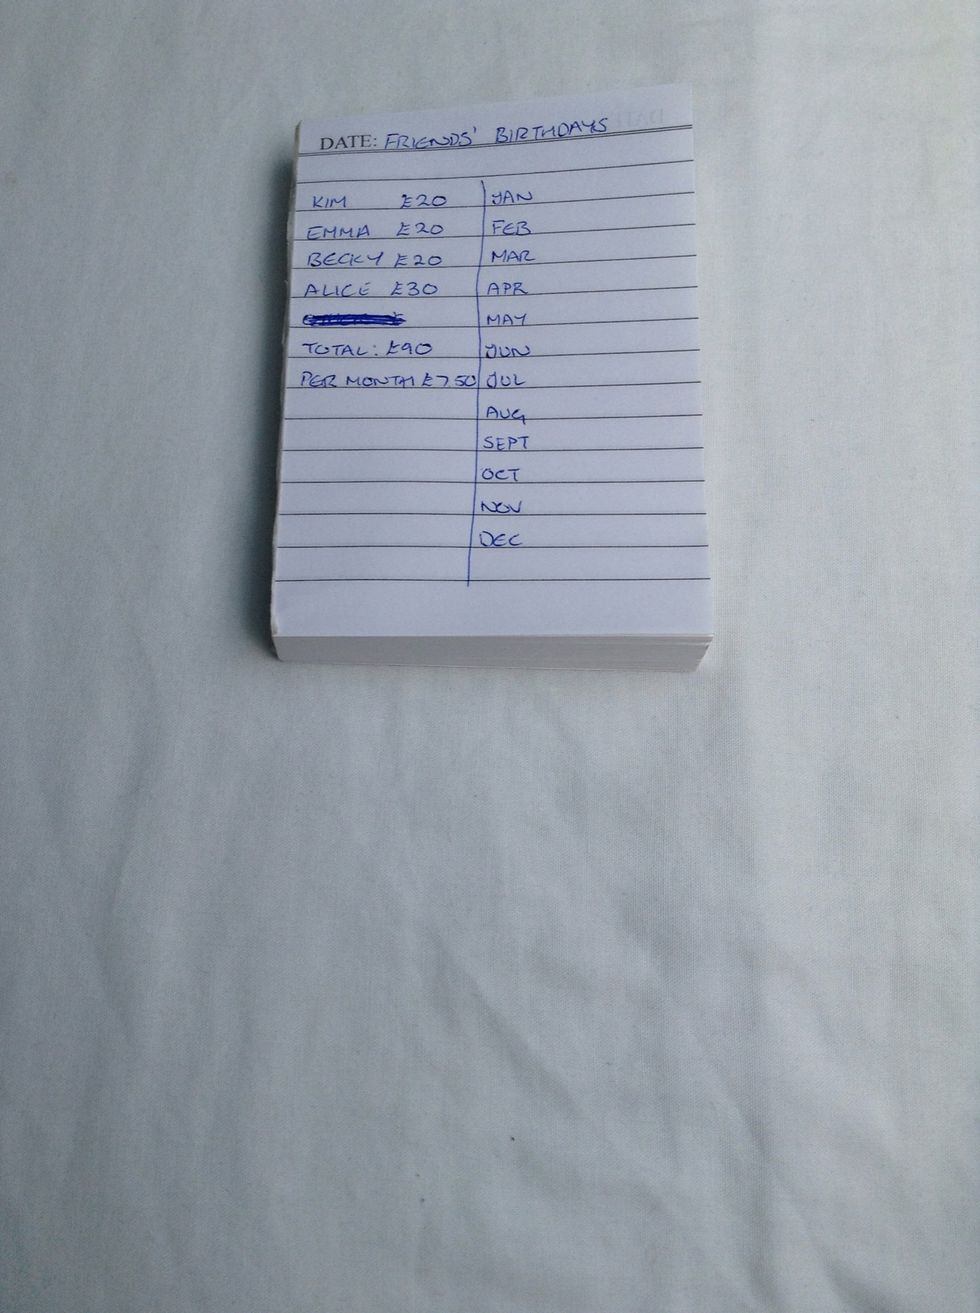 DATE: FRIENDS' BIRTHDAYS
KIM £20 JAN
EMMA £20 FEB
BECKY £20 MAR
ALICE £30 APR
MAY
TOTAL: £90 JUN
PER MONTH £7 50 JUL
AUG
SEPT
OCT
NOV
DEC